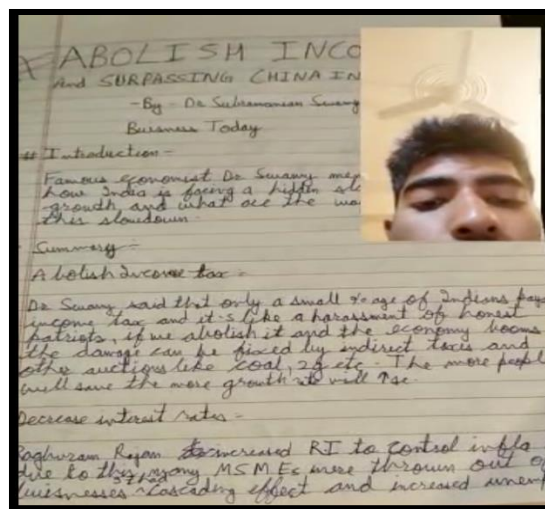 ABOLISM INCO
And SURPASSING CHINA IN
- By - Dr Subramanian Swamy
Buisness Today
# Introduction -
Famous economist Dr Swamy men
how India is facing a hidden slo
growth and what are the wa
this slowdown.
Summary :-
Abolish Income tax :-
Dr Swamy said that only a small %age of Indians pays
income tax and it's like a harassment of honest
patriots, if we abolish it and the economy booms
the damage can be fixed by indirect taxes and
other auctions like coal, 2g etc. The more peopl
will save the more growth rate will rise.
Decrease interest rates -
Raghuram Rajan increased RI to control infla
due to this many MSMEs were thrown out o
buisnesses - Cascading effect and increased unem